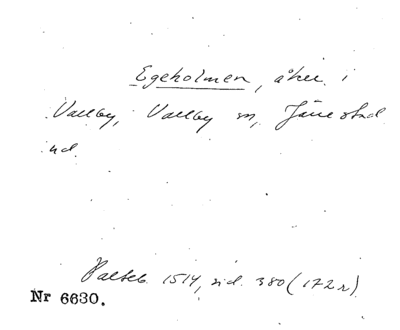 Egeholmen, åker i
Vallby, Vallby sn, Järrestad
hd.
Palteb. 1514, sid. 380 (172 r).
Nr 6630.